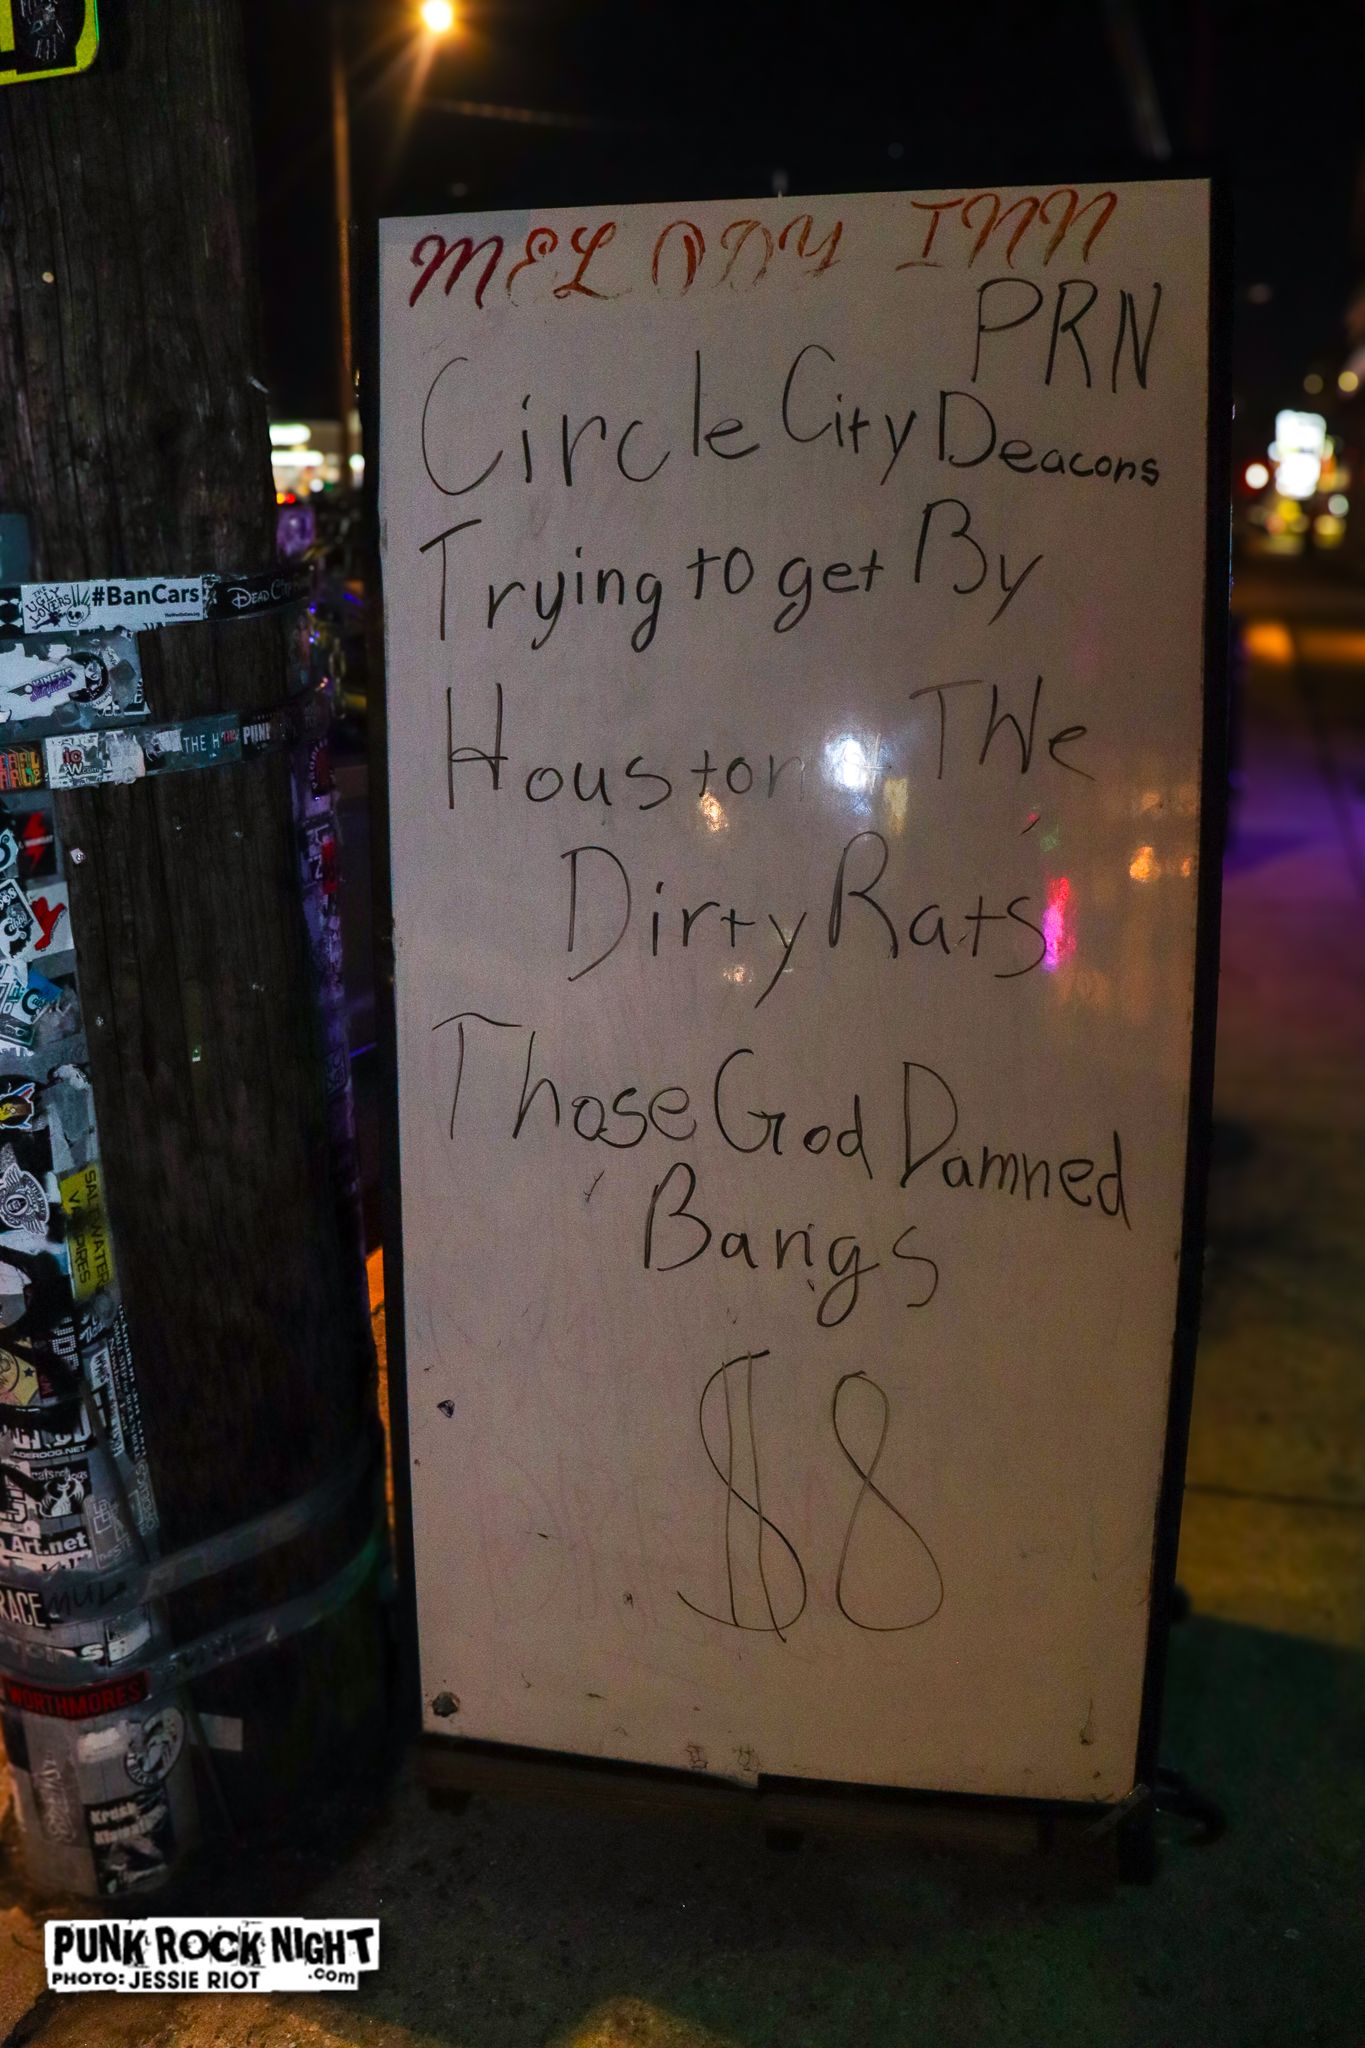 MELODY INN
PRN
Circle City Deacons
Trying to get By
Houston + THe
Dirty Rats
Those God Damned
Bangs
$8
THE UGLY LOVERS
#BanCars
DEAD CITY
KINETIC
THE
PUNK
SALTWATER
VAMPIRES
Art.net
RACE
WORTHMORES
PUNK ROCK NIGHT
.com
PHOTO: JESSIE RIOT